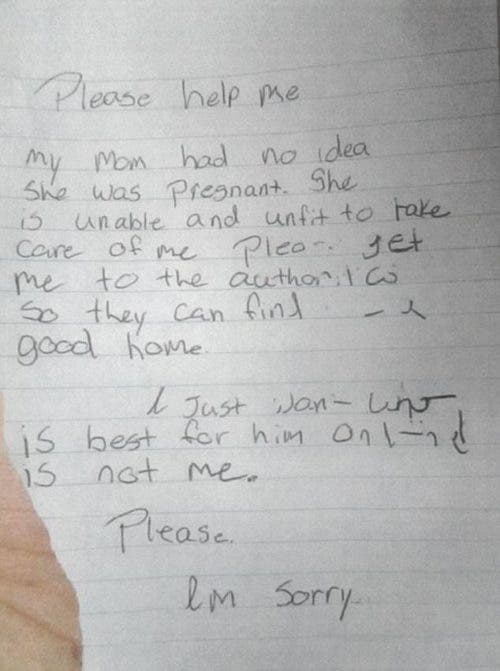 Please help me
my Mom had no idea
She was Pregnant. She
is unable and unfit to take
care of me get
me to the
So they can find
good home.
I Just
is best for him
is not me.
Please.
Im Sorry